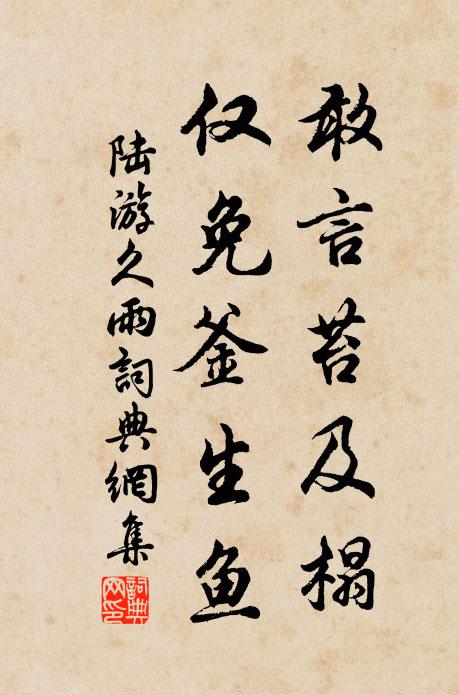 敢言苔及榻
仅免釜生鱼
陆游久雨詞典網集
詞典网印